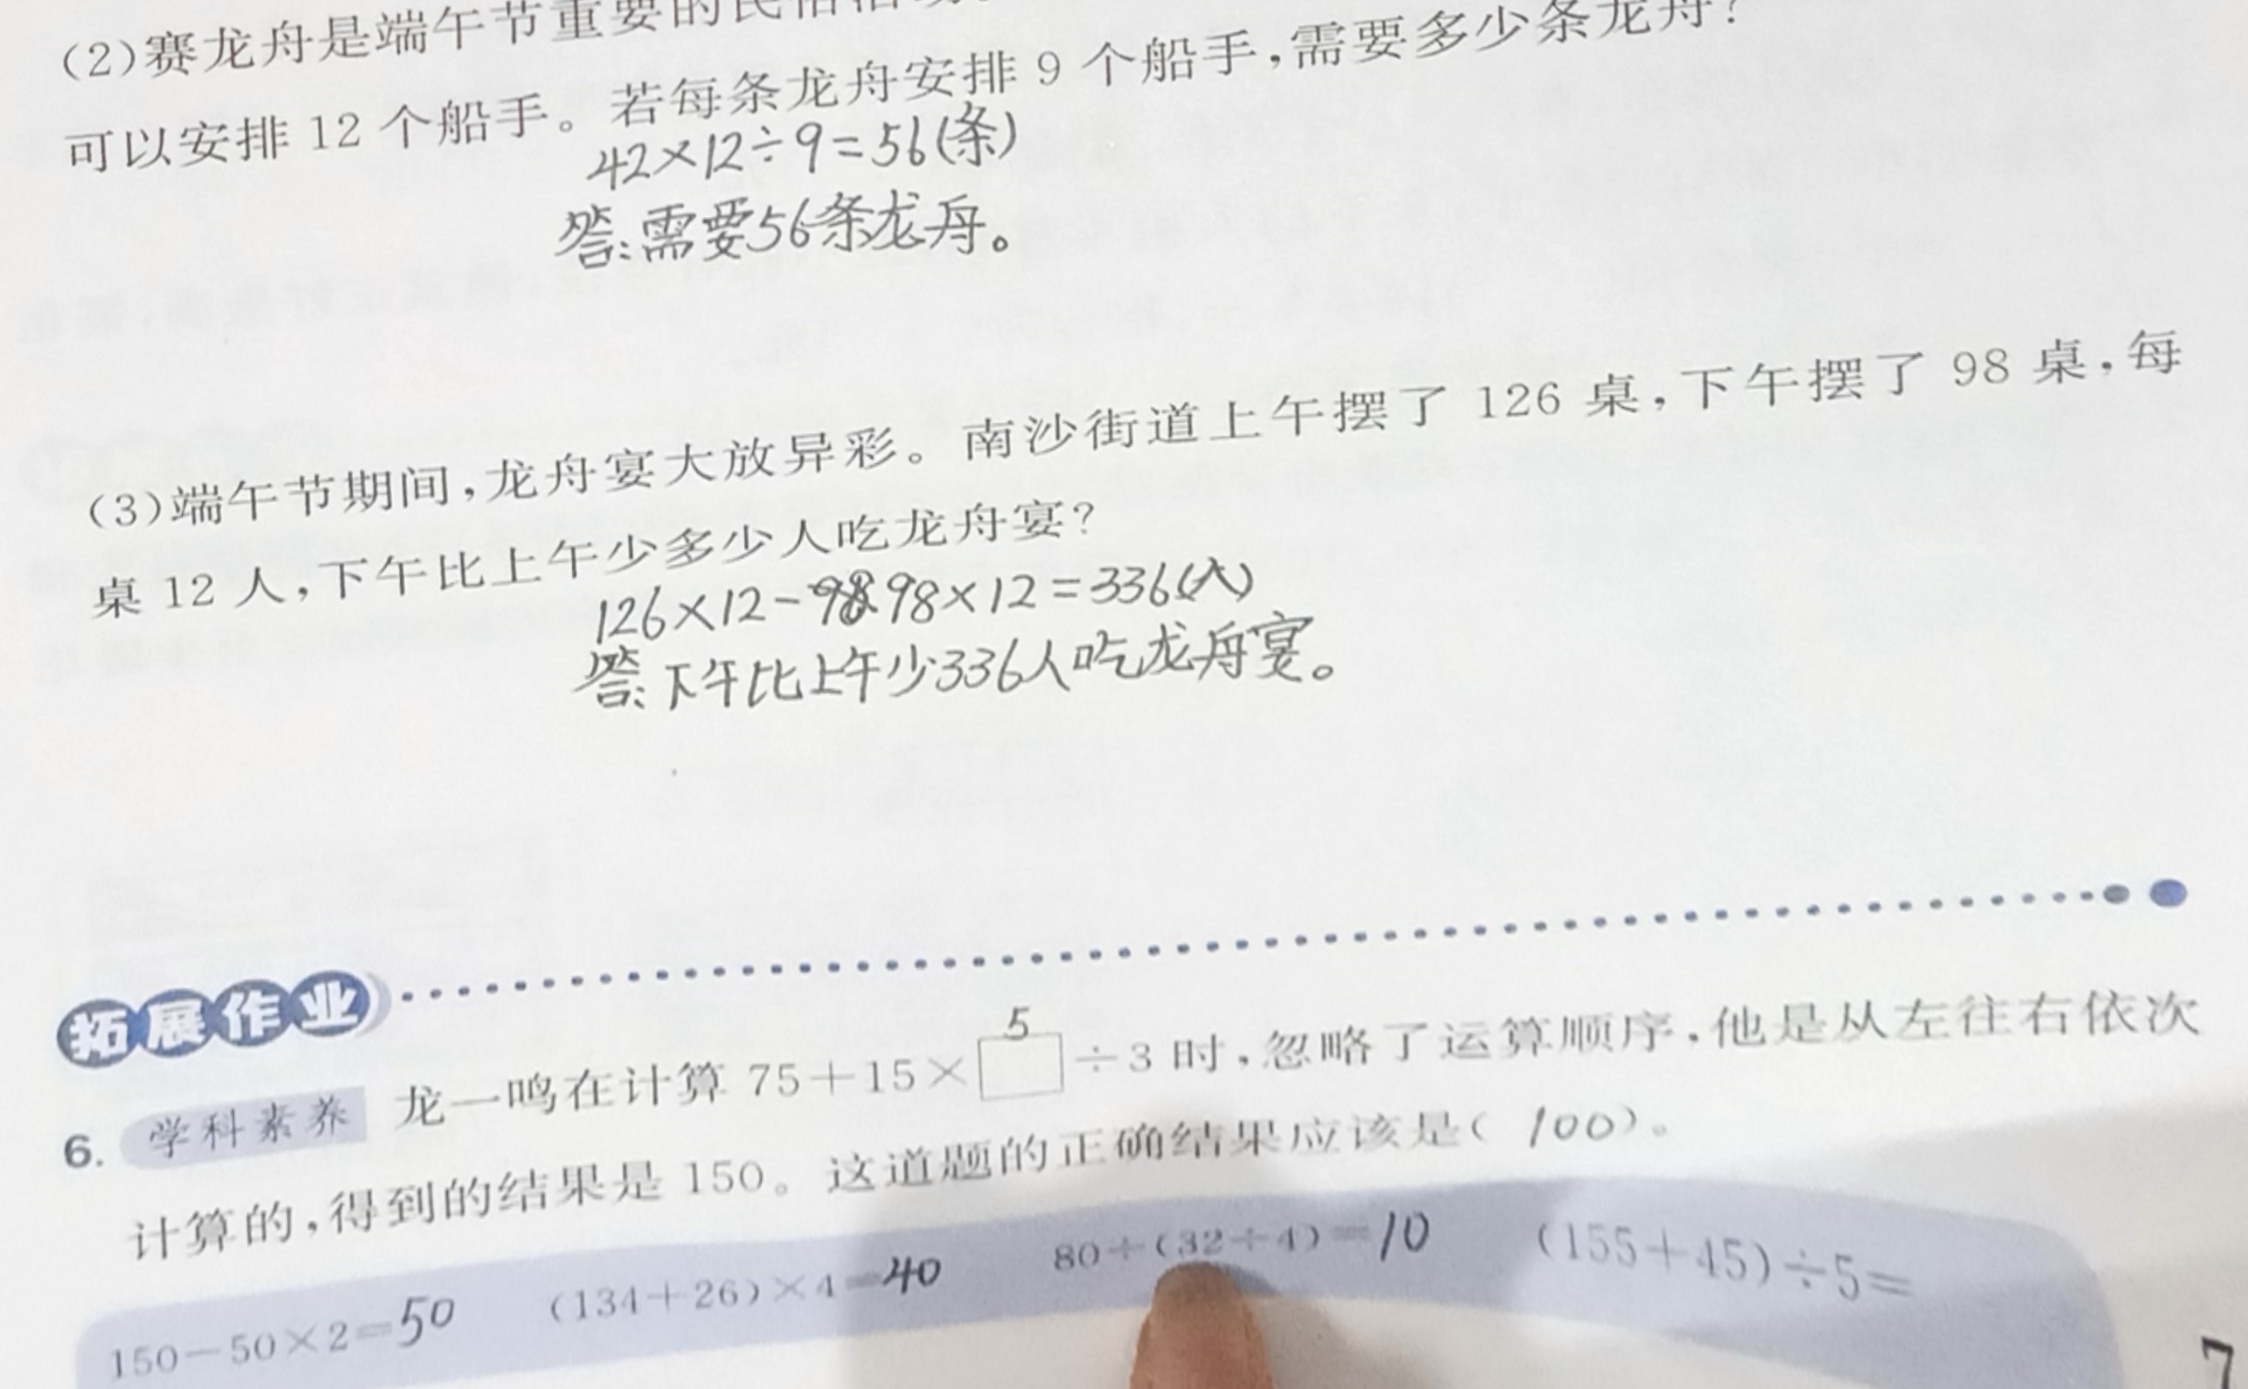 (2)赛龙舟是端午节重要的民俗活动
可以安排 12 个船手。若每条龙舟安排 9 个船手,需要多少条龙舟?
42×12÷9=56(条)
答:需要56条龙舟。
(3)端午节期间,龙舟宴大放异彩。南沙街道上午摆了 126 桌,下午摆了 98 桌,每
桌 12 人,下午比上午少多少人吃龙舟宴?
126×12-98×12=336(人)
答:下午比上午少336人吃龙舟宴。
拓展作业
6. 学科素养 龙一鸣在计算 75+15×□5÷3 时,忽略了运算顺序,他是从左往右依次
计算的,得到的结果是 150。这道题的正确结果应该是( 100 )。
150-50×2=50 (134+26)×4=40 80÷(32÷4)=10 (155+45)÷5=
7